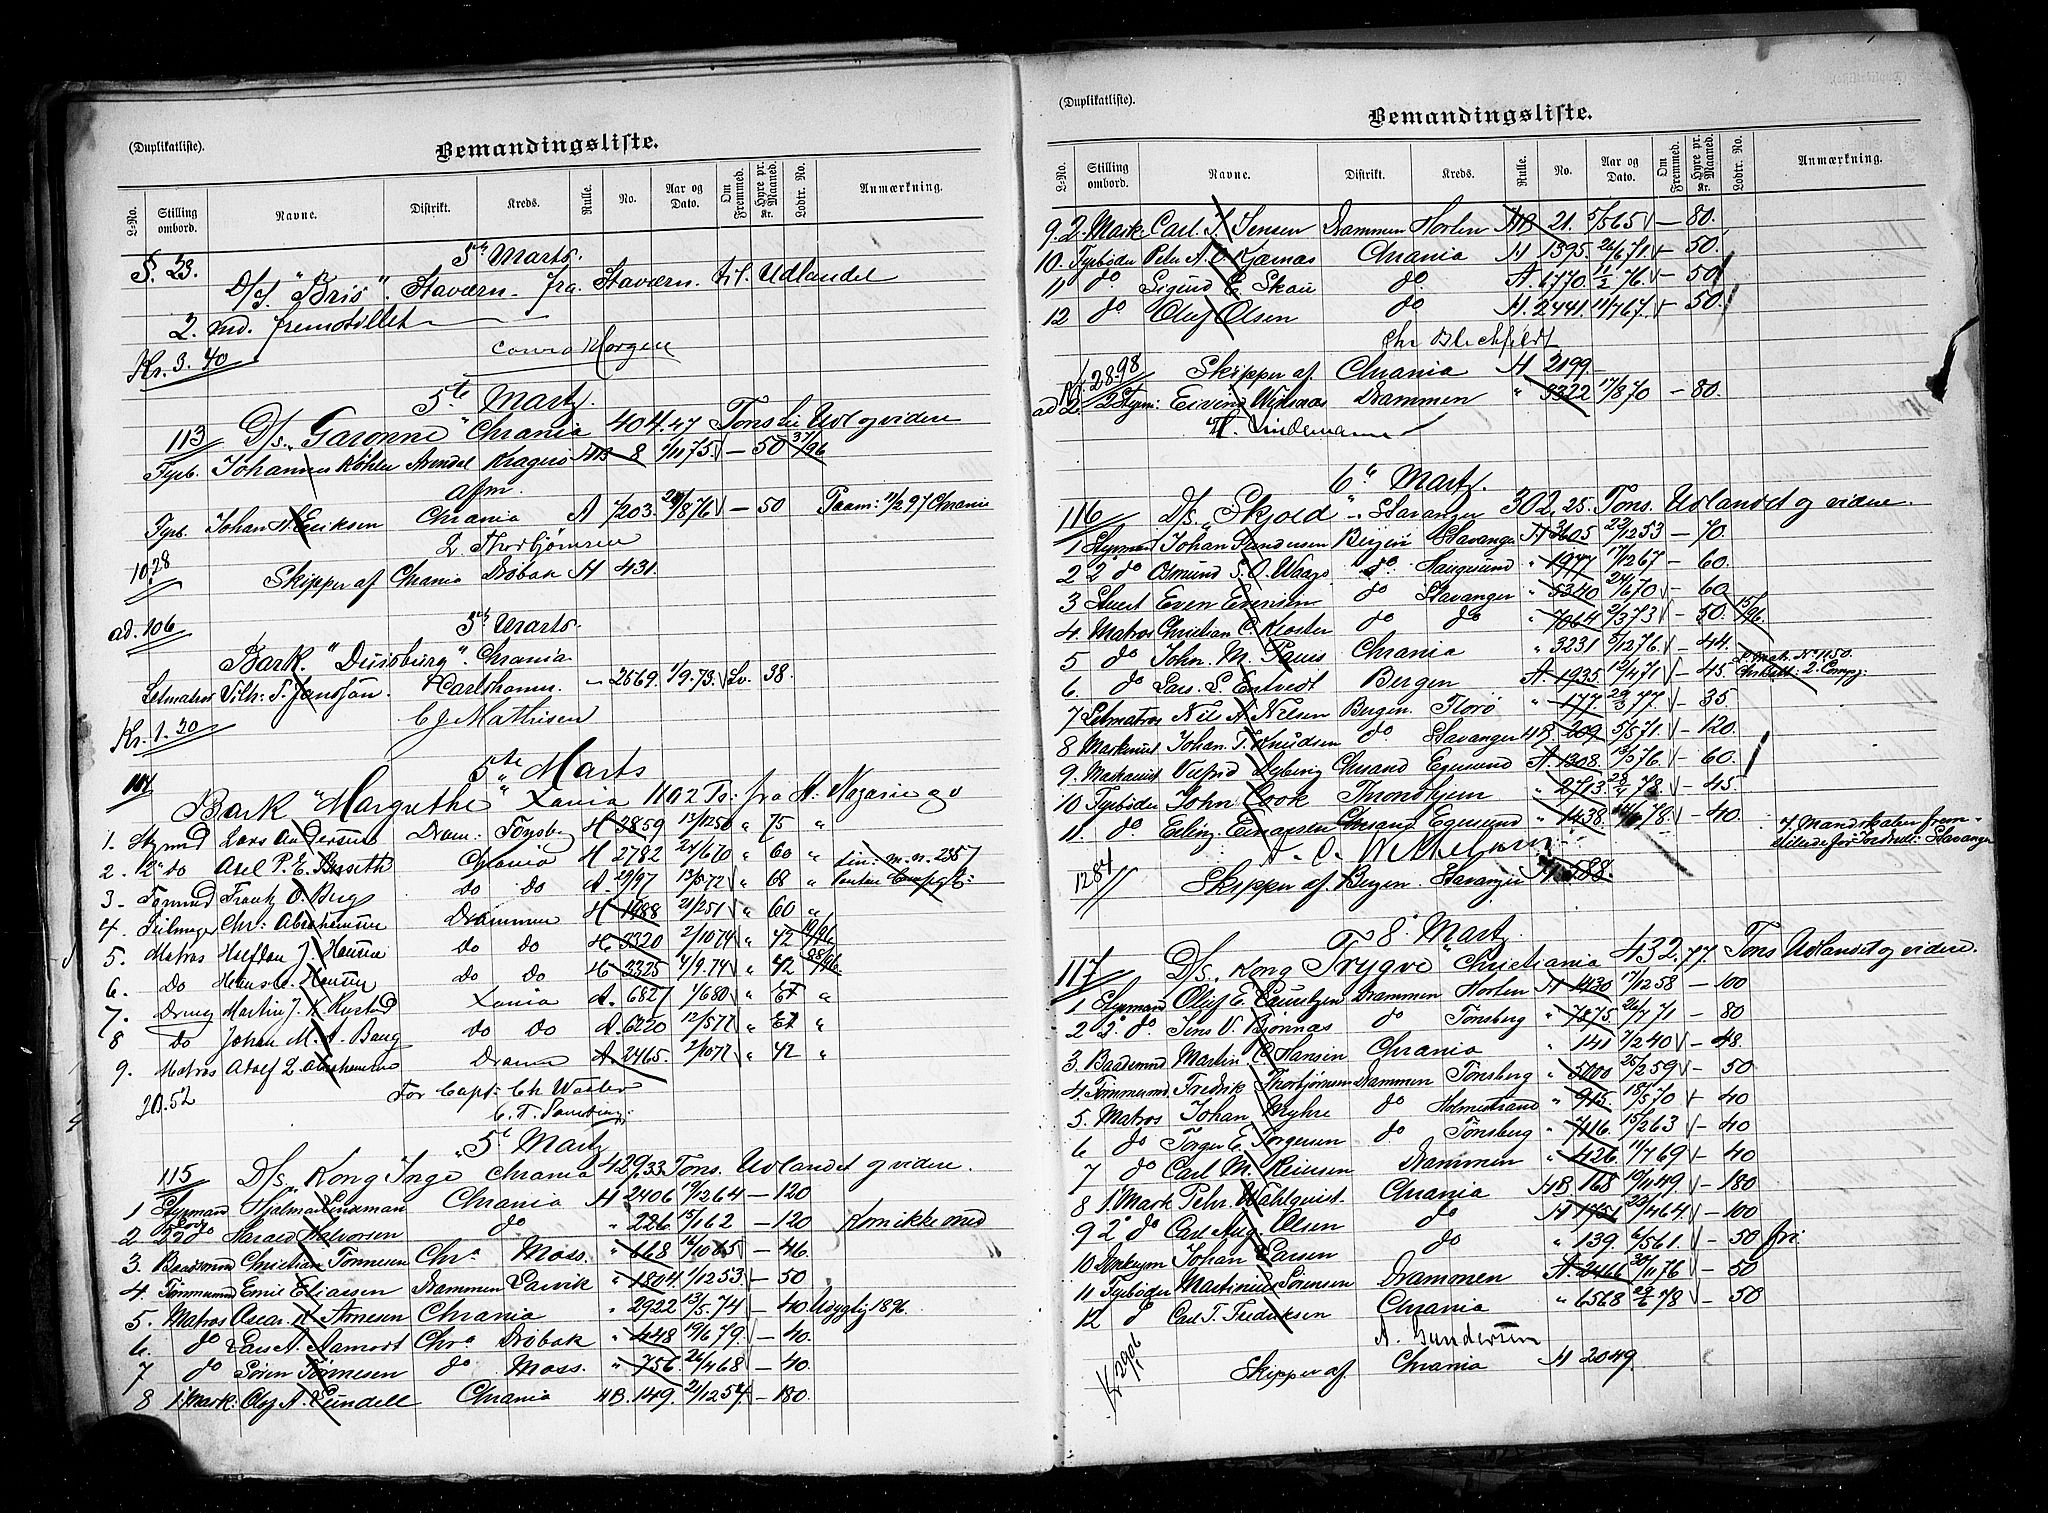 (Duplikatliste).
Bemandingsliste.
L-No. Stilling ombord. Navne. Distrikt. Kreds. Rulle. No. Aar og Dato. Om Fremmed. Hyre pr. Kr. Maaned. Lodtr. No. Anmærkning.
S. 23. 5te Marts.
D/S. "Bris". Staværn. fra Staværn. til Udlandet
2. md. fremstillet
Kr. 3. 40
5te Martz.
113 D/s. "Garonne" Chrania 404.47 Tons til Udl og videre
Fyrb. Johannes Køhler Arendal Kragerø HB 8 1/11 75 — 50 37/96
afm.
Fyrb. Johan H. Eriksen Chrania A 7203. 28/8 76 — 50 Paam: 11/2 97 Chrania
L. Thorbjørnsen
10.28
Skipper af Chrania Drøbak H 431.
ad. 106 5te Marts.
Bark. "Duisburg". Chrania
Letmatros Vilh: T. Jansson Karlshamn. — 2569. 1/9.73. Sv. 38.
C J Mathisen
Kr. 1.30
114 5te Marts
Bark "Margrethe" Xania 1102 Ts: fra St. Nazaire og v
1. Stymd Lars Andersen Dram: Tønsbg H 3859 13/12 50 " 75 "
2. 2d do Axel P. E. Berseth Chrania H 2782 24/6 70 " 60 "
3. Tømmd Frantz O. Berg do do A. 2997 13/5 72 " 68 "
4. Seilmager Chr: Abrahamsen Drammen H 1988 21/2 51 " 60 "
5. Matros Halfdan J. Hansen do do H 3320 2/10 74 " 42 19/96
6. do Hansen do do H 3325 4/9.74 " 42 28/96
7. Dreng Martin J. K. Xania A. 6827 1/6 80 " "
8 do Johan M. A. Berg do do A 6220 12/5 77 " "
9. Matros Adolf L. Abrahamsen Dramn A 2465. 2/10 77 " 42 "
20.52 For Capt: Ch
5te Martz
115 D/s. "Kong Inge" Chrania 429.33. Tons. Udlandet og videre.
1 Styrmand Hjalmar Lindman Chrania H 2406 19/12 64 — 120
2 2d do Harald Halvorsen do " 226. 15/1 62 — 120 Kom ikke med
3. Baadsmnd Christian Tønnesen Chra Moss. " 668 16/10 65 — 46.
4. Tømmermnd Emil Eliassen Drammen Larvik " 1804. 1/12 53. — 50
5. Matros Oscar A. Arnesen Chrania " 2922 13/5 74 — 40 Usygtig 1896.
6. do Lars A. Aamodt Chra Drøbak " 448 19/6 79. — 40.
7 do Søren Tønnesen do Moss. " 756. 26/4 68 — 40.
8 1 Mask: Olaf A. Lundell Chrania HB. 149. 21/12 54. — 180.
(Duplikatliste).
Bemandingsliste.
L-No. Stilling ombord. Navne. Distrikt. Kreds. Rulle. No. Aar og Dato. Om Fremmed. Hyre pr. Kr. Maaned. Lodtr. No. Anmærkning.
9. 2. Mask Carl J. Jensen Drammen Horten HB 21. 5/5 65 — 80.
10. Fyrbøder Peter A. O. Kjærnas Chrania H 1395. 26/6 71. — 50.
11 do Sigurd E. Skau do A. 6770. 11/2 76. — 50
12 do Oluf Olsen do H. 2441. 11/7 67. — 50.
Chr Blichfeldt
Kr 28.98 Skipper af Chrania H 2199.
ad 2. 2 Stym: Eivind Drammen " 3322 17/8 70 — 80.
H. Lindemann
6te Martz.
116 D/s. "Skjold" Stavanger 302,25. Tons. Udlandet og videre.
1 Styrmand Johan Gundersen Bergen Stavanger H 3605 22/12 53 — 70.
2 2 do Osmund S. O. Waage do Haugesund " 1977 17/12 67 — 60.
3 Stuert Even Evensen do Stavanger " 5340 24/1 70 — 60
4. Matros Christian C. Kloster do do " 7064 2/3 73 — 50. 15/96
5 do John. M. Paus Chrania " 3231 5/12 76. — 44.
6. do Lars. L. Entvedt Bergen A 1935 12/4 71 — 45.
7 Letmatros Nils N. Nilsen Bergen. Florø " 177 29/3 77. — 35
8 Maskinist Johan. T. Knudsen do. Stavanger HB. 209 5/5 71. — 120.
9. Maskinist Vilfrid Nyberg Chrsand Egersund A. 1308. 13/1 76. — 60.
10 Fyrbøder John. Cook Trondhjem " 2713 28/4 73. — 45.
11. do Erling Einarsen Chrsand Egersund " 1438. 14/6 78. — 40. 7 Mandskaber frem-
stillede for Stavanger
12.84
Skipper af Bergen. Stavanger H 588.
8. Martz.
117 D/s. "Kong Trygve" Christiania 432.77. Tons Udlandet og videre.
1 Styrmand Oluf E. Lauritzen Drammen Horten H 1430 17/12 58 — 100
2 2. do. Jens V. Bjønnas do Tønsberg " 7875. 26/7 71 — 80
3. Baadsmnd Martin O. Hansen Chrania " 141 7/2 40 — 48.
4. Tømmermnd Fredrik Thorbjørnsen Drammen Tønsberg " 5000 25/2 59 — 50
5. Matros Johan Myhre do Holmestrand " 915. 18/5 70 — 40
6 do Torger E. Torgersen do Tønsberg " 7416. 15/2 63 — 40
7 do Carl M. Reinsen Drammen " 426. 11/7 69 — 40
8 1 Mask Pehr. Wahlquist. Chrania HB 165 19/11 49 — 180
9 2 do Carl Aug. Olsen do H 1751 20/4 64 — 100
10 Donkeym Johan Larsen do " 139. 6/5 61. — 50 fri
11 Fyrbøder Martinius Sørensen Drammen A. 2466 20/11 76 — 50
12 d Carl T. Fredriksen Chrania " 6568 29/6 78 — 50
A. Gundersen
Kr 29.06 Skipper af Chrania H 2049.